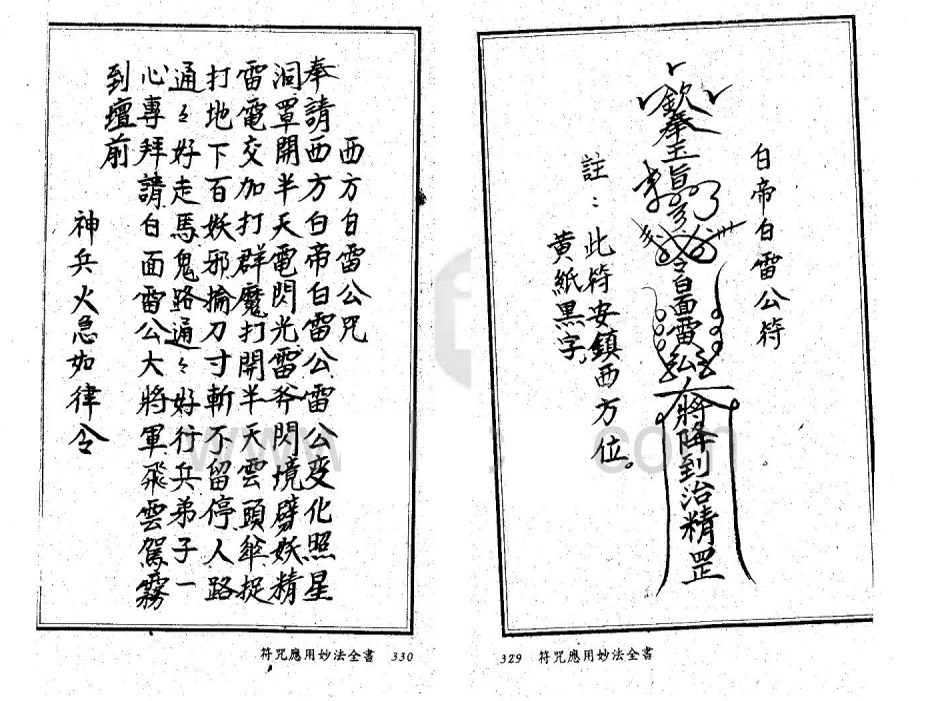 白帝白雷公符
欽奉玉旨
白面雷
將降到治精罡
註：此符安鎮西方位。
黃紙黑字。
329 符咒應用妙法全書
西方白雷公咒
奉請西方白帝白雷公雷公变化照星
洞罩開半天電閃光雷斧閃境劈妖精
雷電交加打群魔打開半天雲頭傘捉
打地下百妖邪掄刀寸斬不留停人路
通々好走馬鬼路通々好行兵弟子一
心專拜請白面雷公大將軍飛雲駕霧
到壇前
神兵火急如律令
符咒應用妙法全書 330